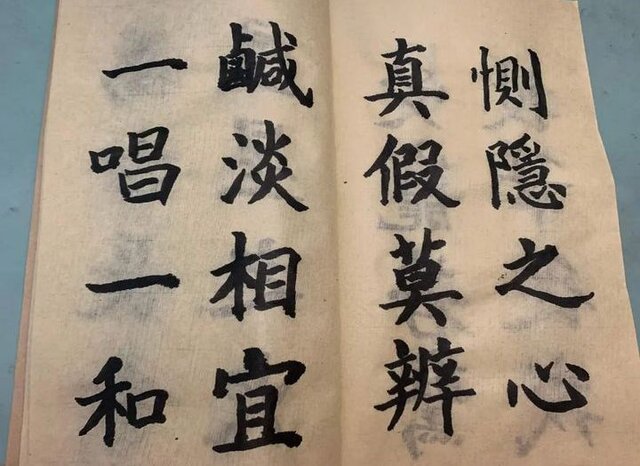 惻隱之心
真假莫辨
鹹淡相宜
一唱一和